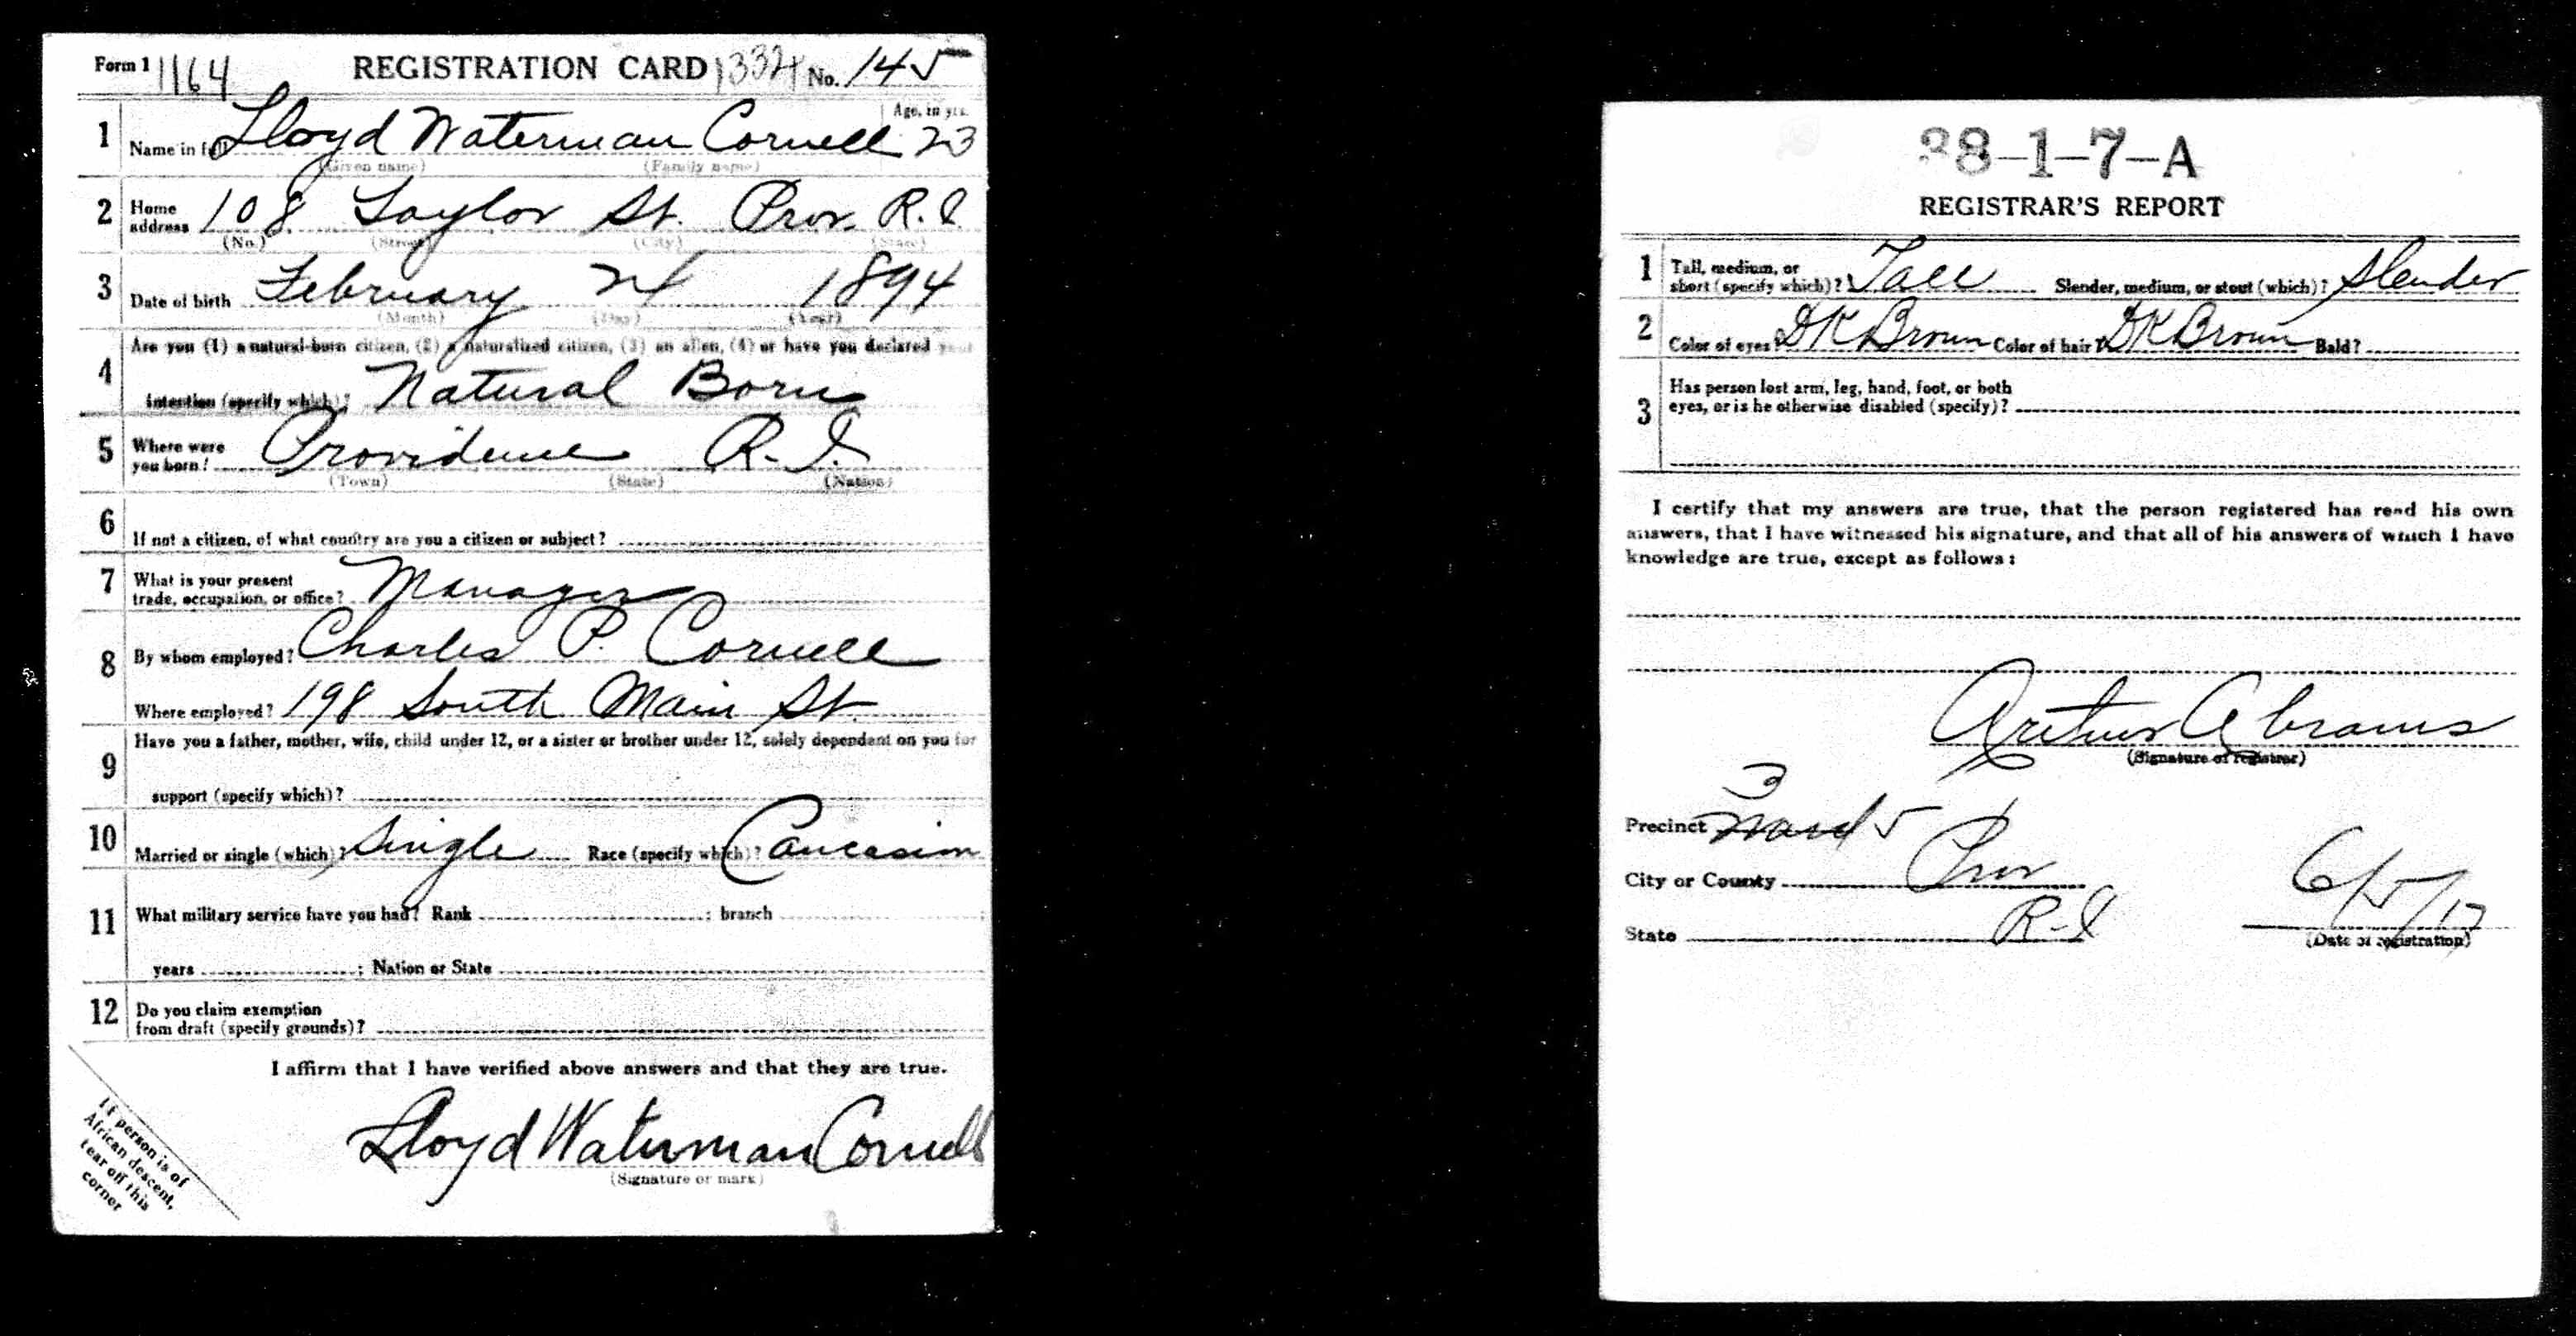 Form 1 1164 REGISTRATION CARD 1332 No. 145
Age, in yrs.
1 Name in full Lloyd Waterman Cornell 23
(Given name) (Family name)
2 Home address 108 Taylor St. Prov. R.I.
(No.) (Street) (City) (State)
3 Date of birth February 24 1894
(Month) (Day) (Year)
Are you (1) a natural-born citizen, (2) a naturalized citizen, (3) an alien, (4) or have you declared your
4 intention (specify which)? Natural Born
5 Where were you born? Providence R.I.
(Town) (State) (Nation)
6 If not a citizen, of what country are you a citizen or subject?
7 What is your present
trade, occupation, or office? Manager
8 By whom employed? Charles P. Cornell
Where employed? 198 South Main St.
9 Have you a father, mother, wife, child under 12, or a sister or brother under 12, solely dependent on you for
support (specify which)?
10 Married or single (which)? Single Race (specify which)? Caucasion
11 What military service have you had? Rank ; branch ;
years ; Nation or State
12 Do you claim exemption
from draft (specify grounds)?
I affirm that I have verified above answers and that they are true.
Lloyd Waterman Cornell
(Signature or mark)
If person is of
African descent,
tear off this
corner
38-1-7-A
REGISTRAR'S REPORT
1 Tall, medium, or
short (specify which)? Tall Slender, medium, or stout (which)? Slender
2 Color of eyes? DK Brown Color of hair? DK Brown Bald?
3 Has person lost arm, leg, hand, foot, or both
eyes, or is he otherwise disabled (specify)?
I certify that my answers are true, that the person registered has read his own
answers, that I have witnessed his signature, and that all of his answers of which I have
knowledge are true, except as follows:
Arthur Abrams
(Signature of registrar)
3
Precinct Ward 5
City or County Prov
State R-I
6/5/17
(Date of registration)